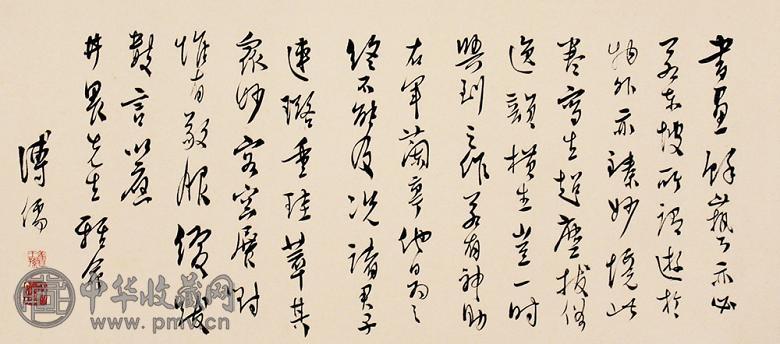 書畫雖藝事亦必
若東坡所謂遊於
物外亦臻妙境此
卷寫生超塵拔俗
逸韻橫生豈一時
興到之作若有神助
右軍蘭亭他日為之
終不能及況諸君子
連璐重珪萃其
眾妙客窗展對
惟有敬服僾跋
數言以應
井畏先生雅命
溥儒
中华收藏网
www.pmv.cn